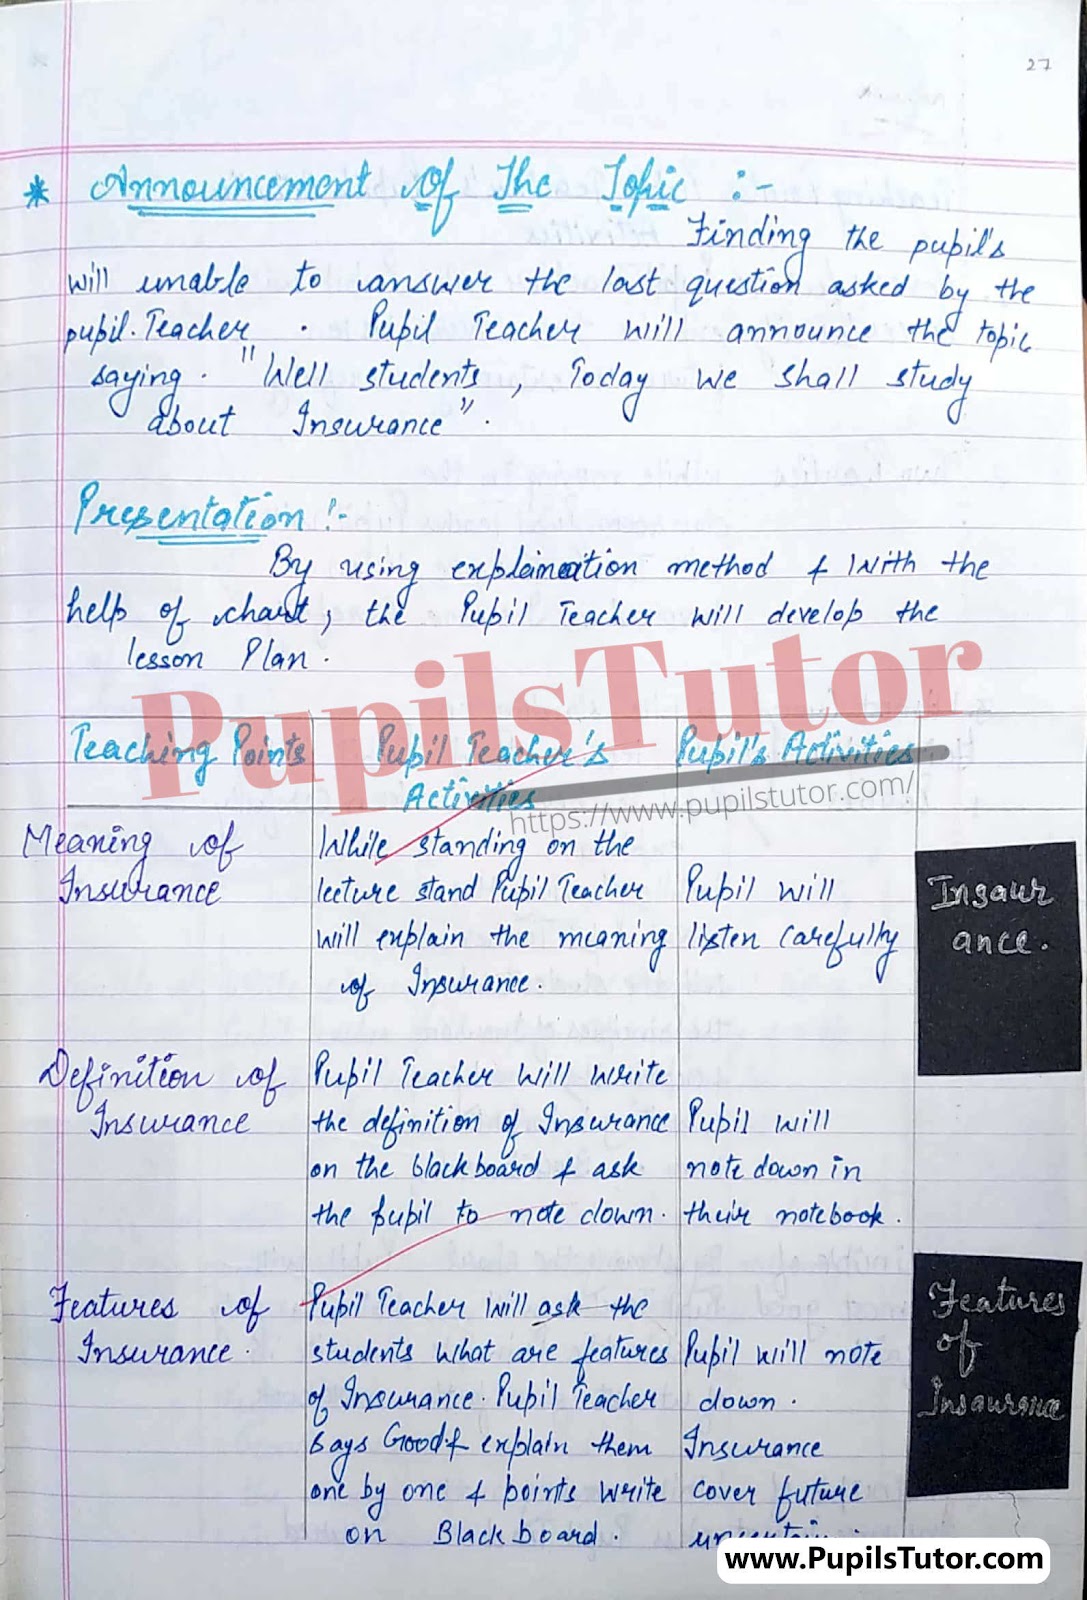 27
* Announcement Of The Topic :-
Finding the pupil's
will unable to answer the last question asked by the
pupil. Teacher . Pupil Teacher will announce the topic
saying . "Well students , Today we shall study
about Insurance".
Presentation :-
By using explaination method & with the
help of chart, the Pupil Teacher will develop the
lesson Plan .
PupilsTutor
https://www.pupilstutor.com/
Teaching Points
Pupil Teacher's
Activities
Pupil's Activities
Meaning of
Insurance
While standing on the
lecture stand Pupil Teacher
will explain the meaning
of Insurance .
Pupil will
listen carefully
Insaur
ance.
Definition of
Insurance
Pupil Teacher will write
the definition of Insurance
on the blackboard & ask
the pupil to note down .
Pupil will
note down in
their notebook .
Features of
Insurance .
Pupil Teacher will ask the
students what are features
of Insurance . Pupil Teacher
says Good & explain them
one by one & points write
on Blackboard .
Pupil will note
down .
Insurance
cover future
Features
of
Insaurance
www.PupilsTutor.com